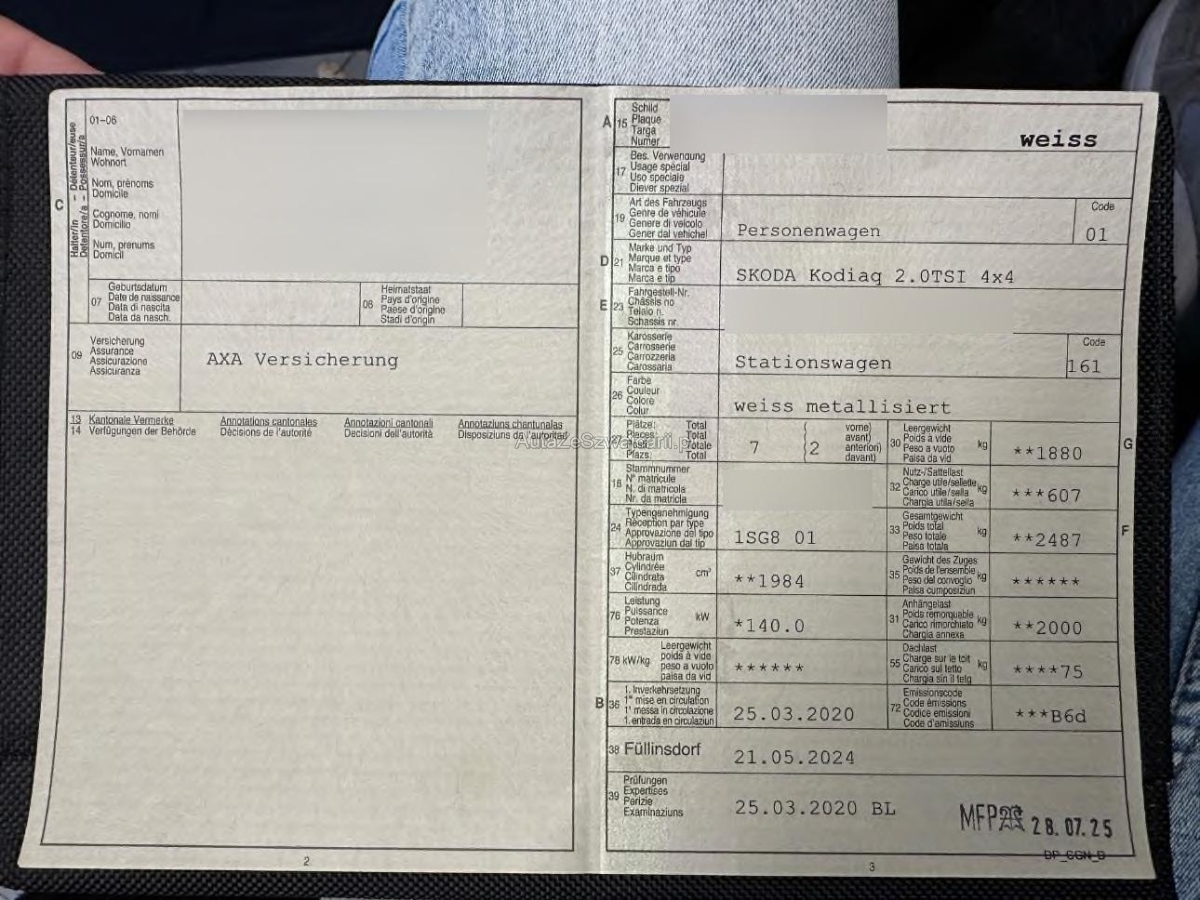 01-06
Halter/in - Détenteur/euse
Detentore/a - Possessur/a
C
Name, Vornamen
Wohnort
Nom, prénoms
Domicile
Cognome, nomi
Domicilio
Num, prenums
Domicil
07
Geburtsdatum
Date de naissance
Data di nascita
Data da nasch.
08
Heimatstaat
Pays d'origine
Paese d'origine
Stadi d'origin
09
Versicherung
Assurance
Assicurazione
Assicuranza
AXA Versicherung
13 Kantonale Vermerke Annotations cantonales Annotazioni cantonali Annotaziuns chantunalas
14 Verfügungen der Behörde Décisions de l'autorité Decisioni dell'autorità Disposiziuns da l'autoritad
2
A 15
Schild
Plaque
Targa
Numer
weiss
17
Bes. Verwendung
Usage spécial
Uso speciale
Diever spezial
19
Art des Fahrzeugs
Genre de véhicule
Genere di veicolo
Gener dal vehichel
Personenwagen
Code
01
D 21
Marke und Typ
Marque et type
Marca e tipo
Marca e tip
SKODA Kodiaq 2.0TSI 4x4
E 23
Fahrgestell-Nr.
Châssis no
Telaio n.
Schassis nr.
25
Karosserie
Carrosserie
Carrozzeria
Carossaria
Stationswagen
Code
161
26
Farbe
Couleur
Colore
Colur
weiss metallisiert
Plätze: Total
Places: Total
Totale
Plazs: Total
7
2
vorne)
avant)
anteriori)
davant)
30
Leergewicht
Poids à vide
Peso a vuoto
Paisa da vid
kg
**1880
G
18
Stammnummer
N° matricule
N. di matricola
Nr. da matricla
32
Nutz-/Sattellast
Charge utile/sellette
Carico utile/sella
Chargia utila/sella
kg
***607
24
Typengenehmigung
Réception par type
Approvazione del tipo
Approvaziun dal tip
1SG8 01
33
Gesamtgewicht
Poids total
Peso totale
Paisa totala
kg
**2487
F
37
Hubraum
Cylindrée
Cilindrata
Cilindrada
cm³
**1984
35
Gewicht des Zuges
Poids de l'ensemble
Peso del convoglio
Paisa cumposiziun
kg
******
76
Leistung
Puissance
Potenza
Prestaziun
kW
*140.0
31
Anhängelast
Poids remorquable
Carico rimorchiato
Chargia annexa
kg
**2000
78 kW/kg
Leergewicht
poids à vide
peso a vuoto
paisa da vid
******
55
Dachlast
Charge sur le toit
Carico sul tetto
Chargia sin il tetg
kg
****75
B 36
1. Inverkehrsetzung
1re mise en circulation
1a messa in circolazione
1. entrada en circulaziun
25.03.2020
72
Emissionscode
Code émissions
Codice emissioni
Code d'emissiuns
***B6d
38 Füllinsdorf
21.05.2024
39
Prüfungen
Expertises
Perizie
Examinaziuns
25.03.2020 BL
MFP 28.07.25
3